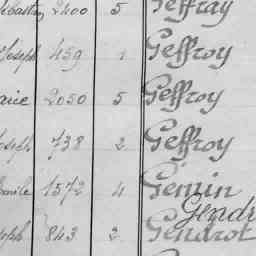 2400 5 Geffray
Joseph 459 1 Geffroy
2050 5 Geffroy
738 2 Geffroy
1572 4 Gemin
Gendr
843 2 Gendrot